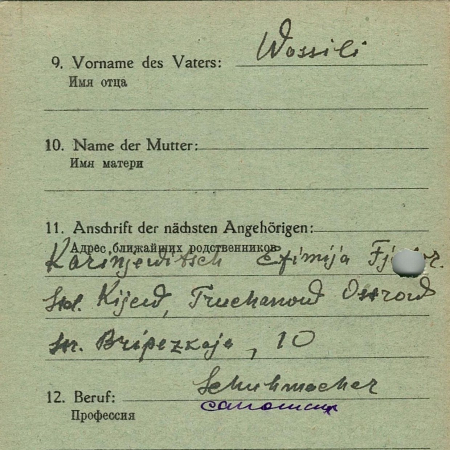 9. Vorname des Vaters: Wassili
Имя отца
10. Name der Mutter:
Имя матери
11. Anschrift der nächsten Angehörigen:
Адрес ближайших родственников
Karinjewitsch Efimija
Kijew, Truchanow Ostrow
Str. Bripezkaja, 10
12. Beruf: Schuhmacher
Профессия сапожник